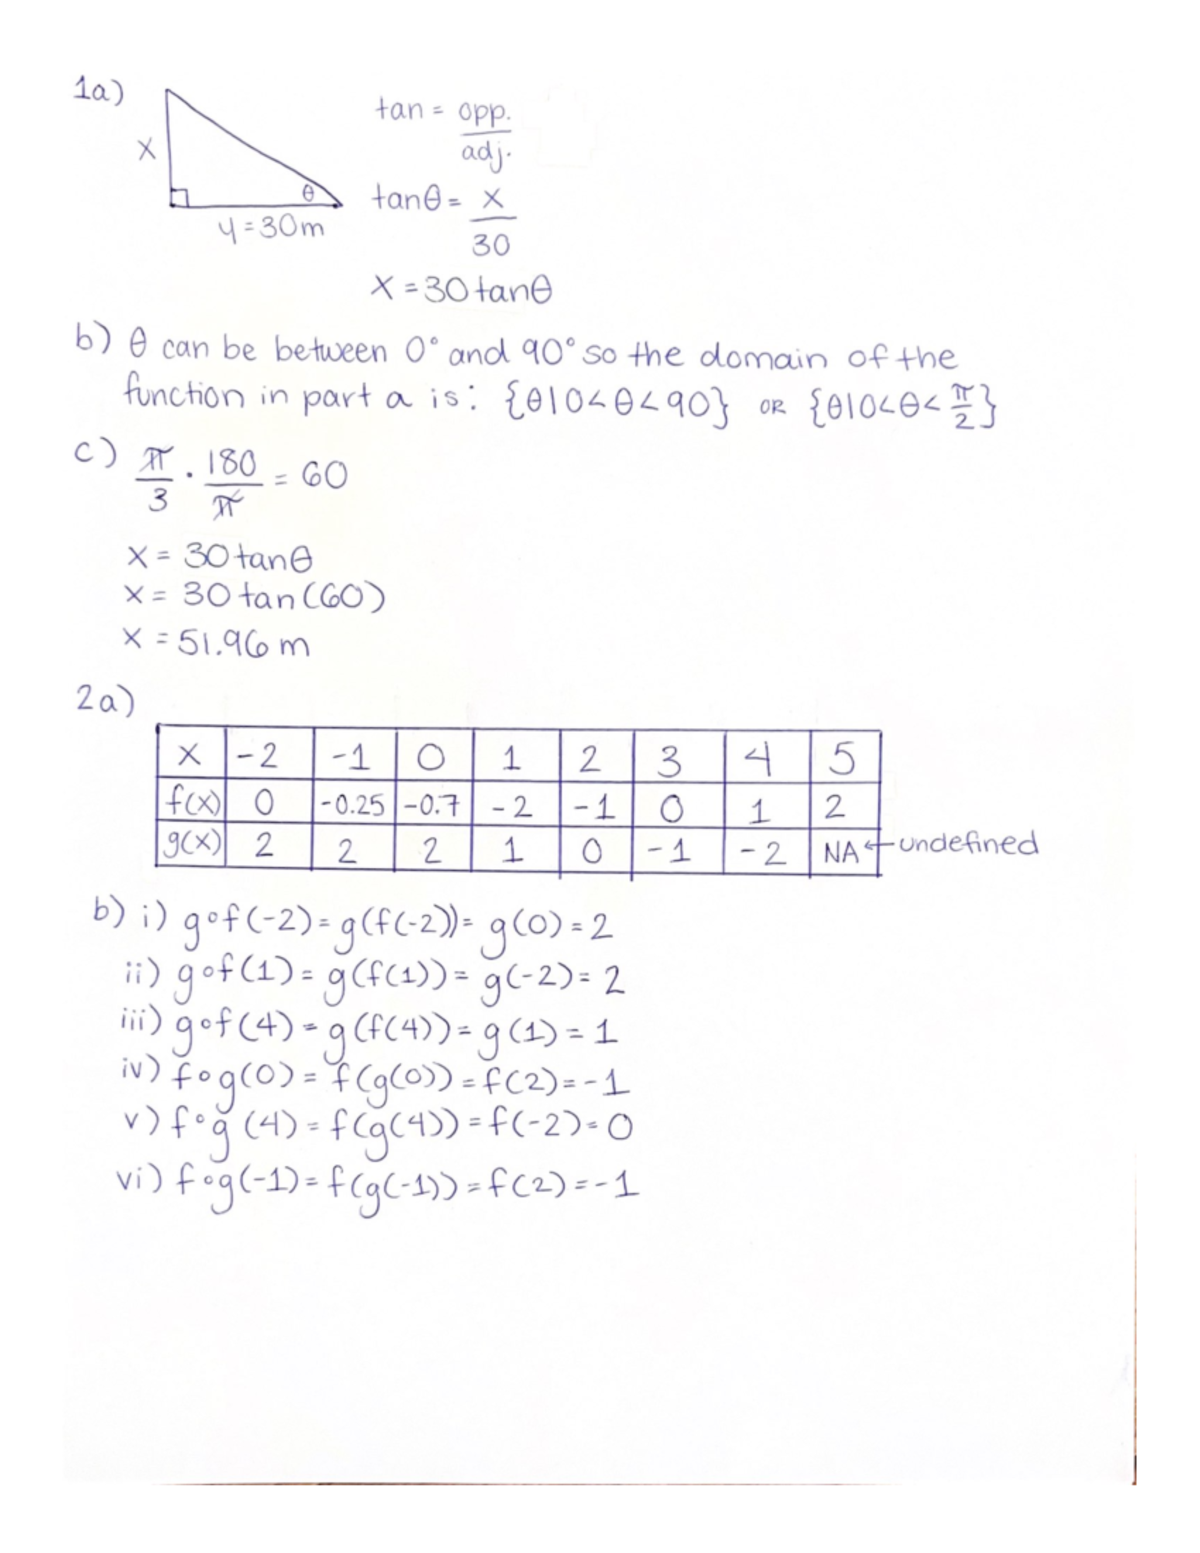 1a)
x
θ
y=30m
tan = opp.
adj.
tanθ = x
30
x = 30tanθ
b) θ can be between 0° and 90° so the domain of the
function in part a is: {θ|0<θ<90} OR {θ|0<θ<π/2}
c) π/3 · 180/π = 60
x = 30tanθ
x = 30tan(60)
x = 51.96m
2a)
x -2 -1 0 1 2 3 4 5
f(x) 0 -0.25 -0.7 -2 -1 0 1 2
g(x) 2 2 2 1 0 -1 -2 NA ← undefined
b) i) g∘f(-2) = g(f(-2)) = g(0) = 2
ii) g∘f(1) = g(f(1)) = g(-2) = 2
iii) g∘f(4) = g(f(4)) = g(1) = 1
iv) f∘g(0) = f(g(0)) = f(2) = -1
v) f∘g(4) = f(g(4)) = f(-2) = 0
vi) f∘g(-1) = f(g(-1)) = f(2) = -1